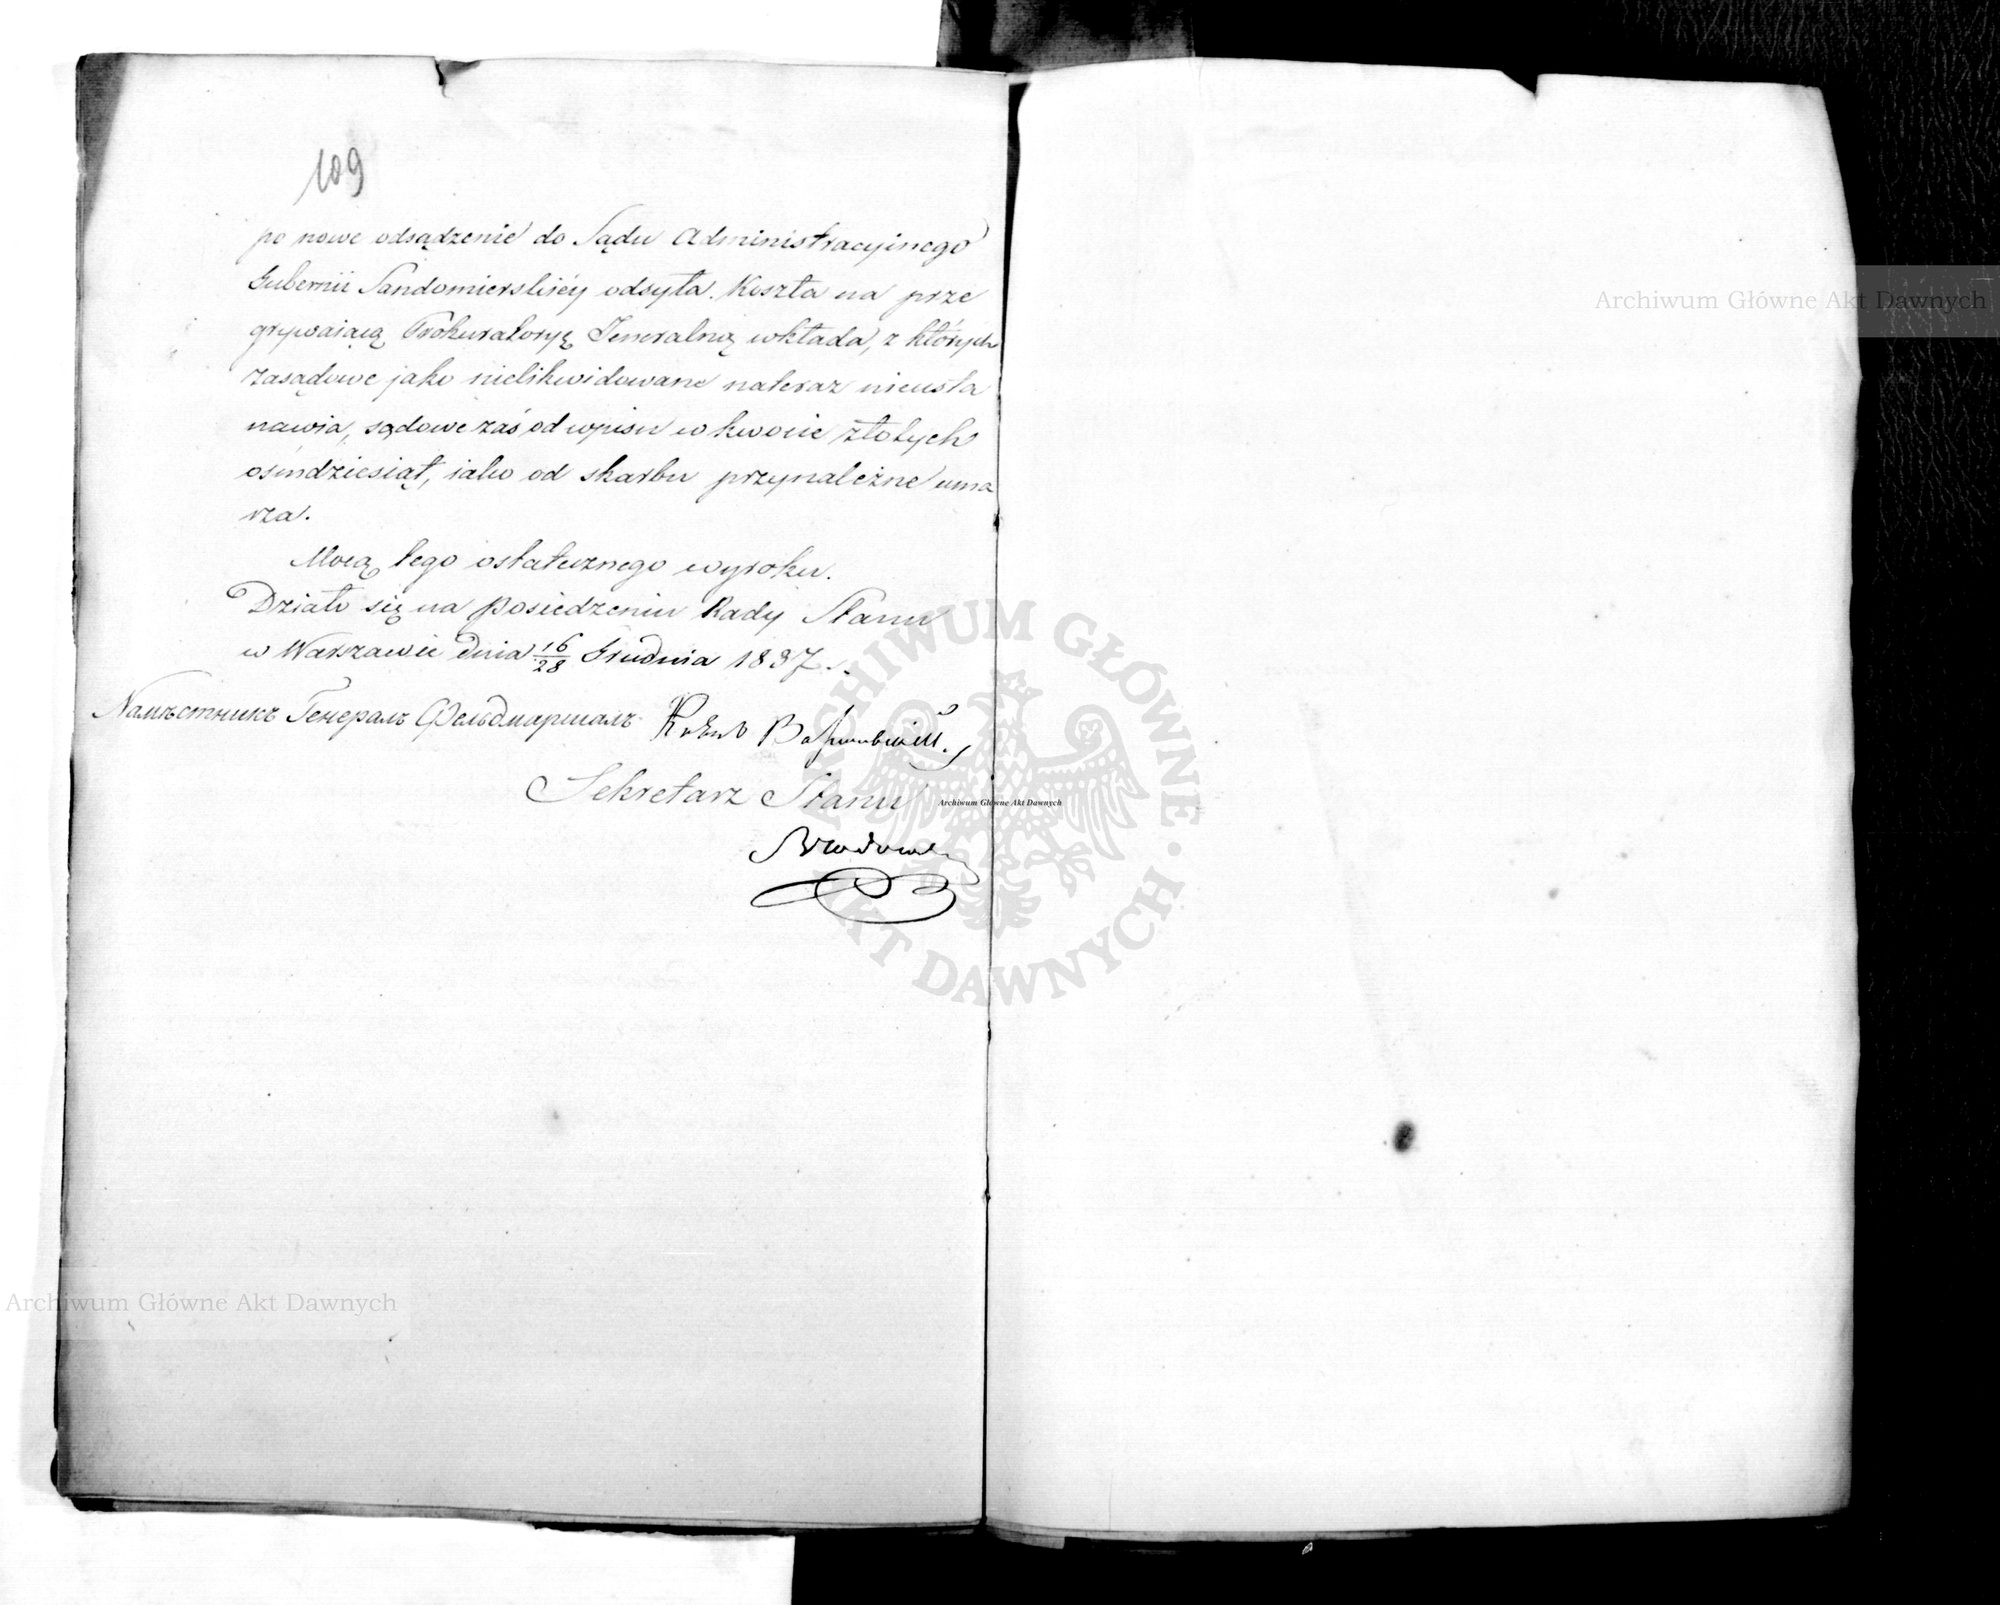 109
po nowe odsądzenie do Sądu Administracyjnego
Gubernii Sandomierskiéy odsyła. Koszta na prze
grywaiącą Prokuratoryę Jeneralną wkłada, z których
zasądowe jako nielikwidowane nateraz nieusta
nawia, sądowe zaś od wpisu w kwocie złotych
ośmdziesiąt, iako od skarbu przynależne uma
rza.
Mocą tego ostatecznego wyroku.
Działo się na posiedzeniu Rady Stanu
w Warszawie dnia 16/28 Grudnia 1837.
Намѣстникъ Генералъ Фельдмаршалъ
Sekretarz Stanu
Archiwum Główne Akt Dawnych
ARCHIWUM GŁÓWNE AKT DAWNYCH
Archiwum Główne Akt Dawnych
Archiwum Główne Akt Dawnych